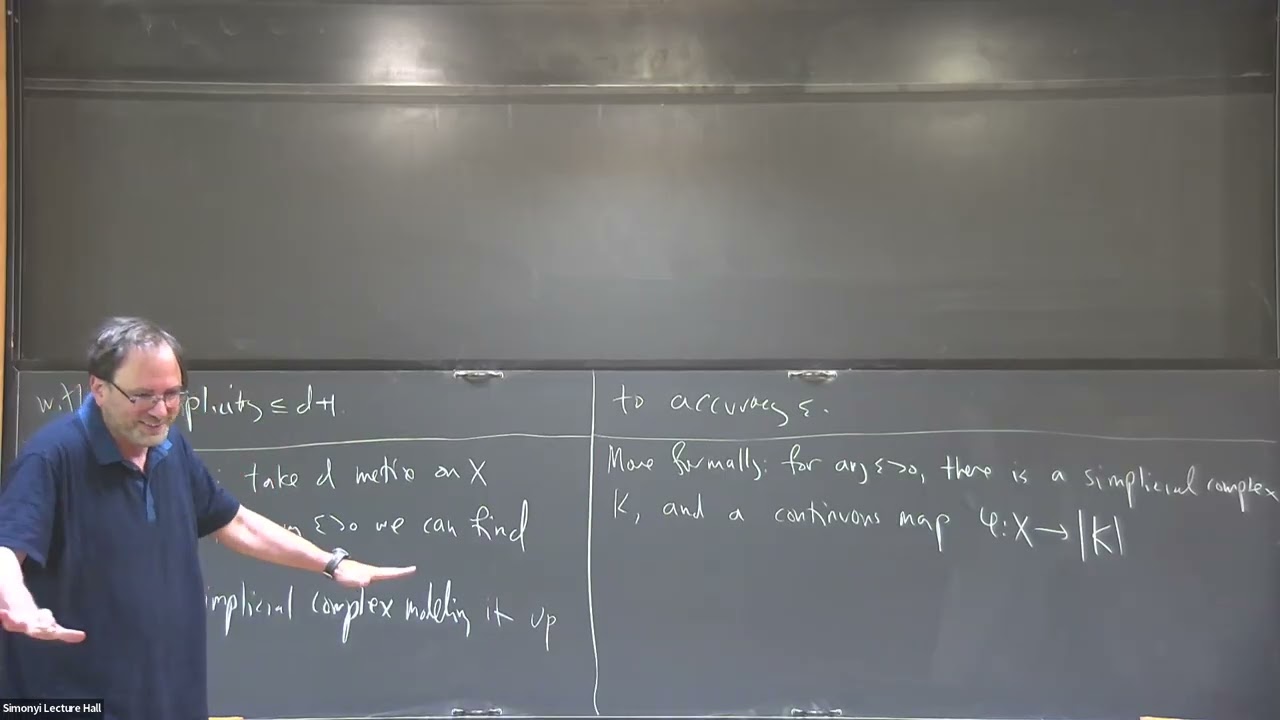 plicity ≤ d+1.
: take d metric on X
ε>0 we can find
implicial complex modeling it up
to accuracy ε.
More formally: for any ε>0, there is a simplicial complex
K, and a continuous map φ: X → |K|
Simonyi Lecture Hall